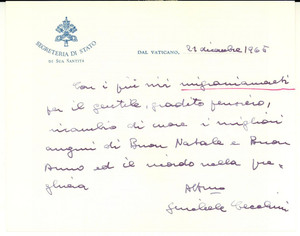 SEGRETERIA DI STATO
DI SUA SANTITÀ
DAL VATICANO, 21 dicembre 1965
Con i più vivi ringraziamenti
per il gentile, gradito pensiero,
ricambio di cuore i migliori
auguri di Buon Natale e Buon
Anno ed il ricordo nella pre-
ghiera